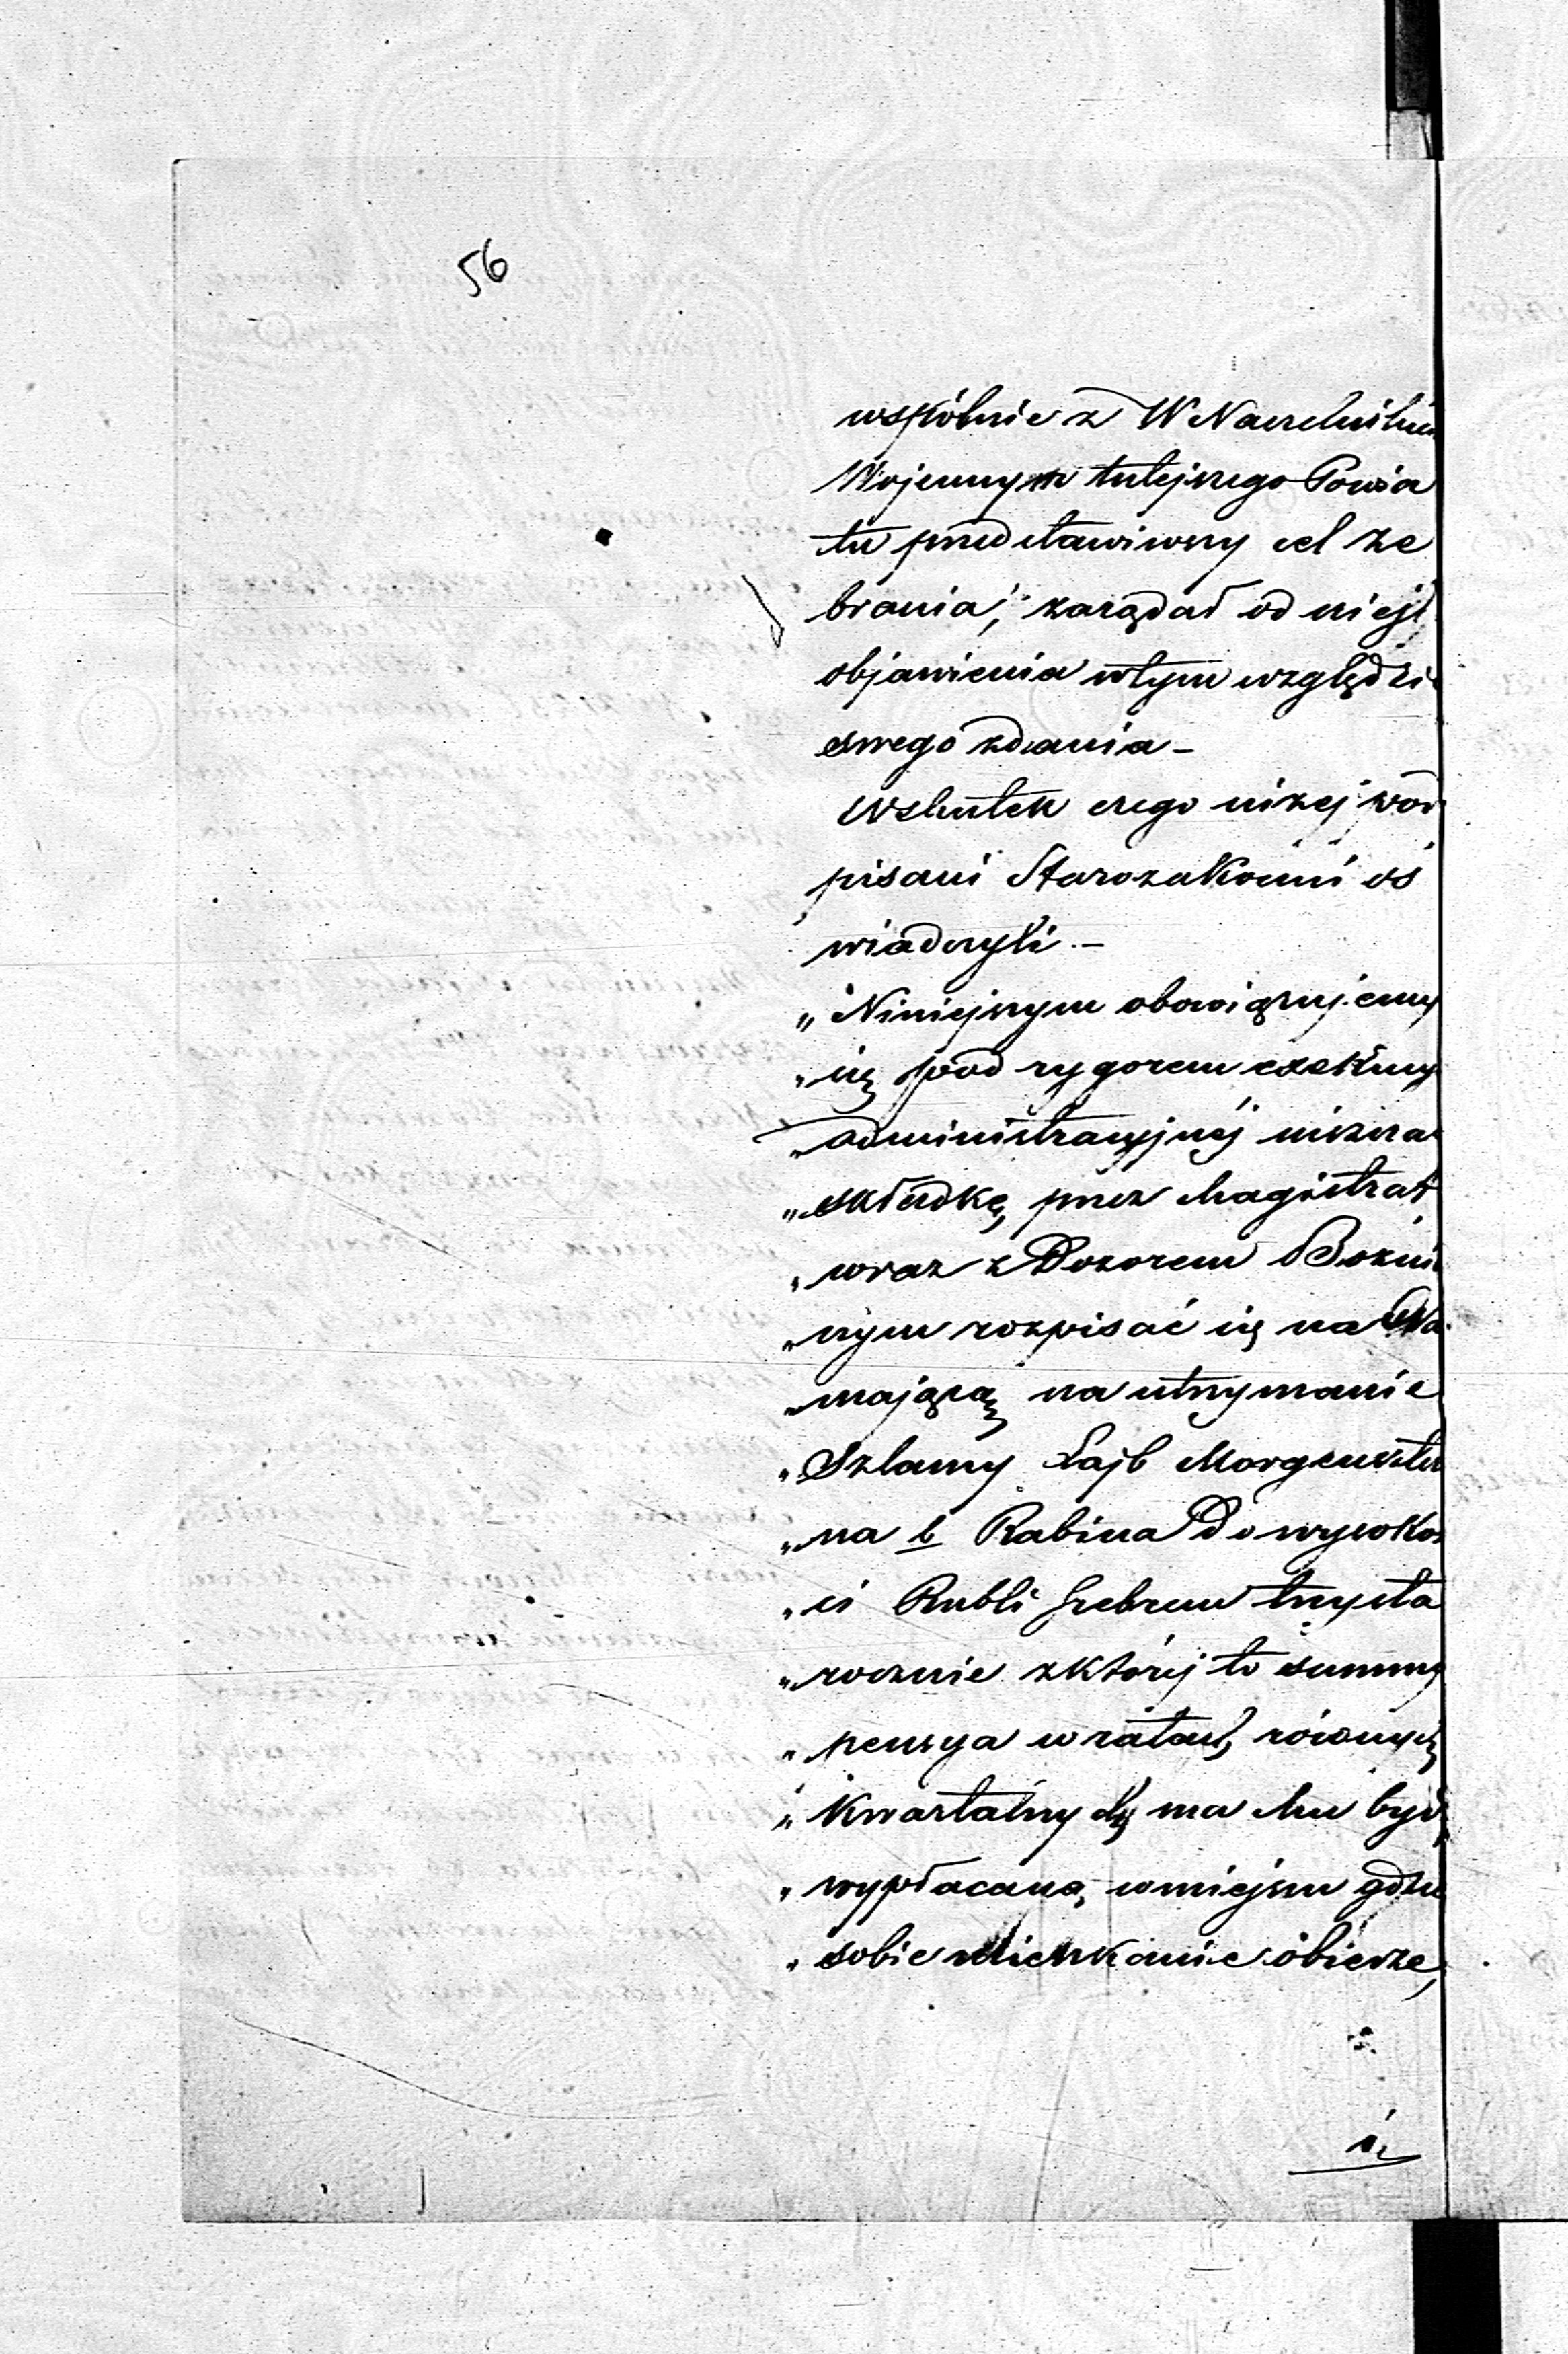 56
wspólnie z W Naczelnikiem
Wojennym tutejszego Powia
tu przedstawiwszy cel ze
brania, zażądał od nich
objawienia wtym względzie
swego zdania –
Wskutek czego niżej pod
pisani Starozakonni oś
wiadczyli –
„Niniejszym obowiązujemy
„się pod rygorem exekucyi
„administracyjnéj uiszczać
„składkę przez Magistrat
„wraz z Dozorem Bożni
„nym rozpisać się na
„mającą na utrzymanie
„Szlamy Lajb Morgensztern
„na b Rabina do wysokoś
„ci Rubli Srebrem trzysta
„rocznie zktórej to summy
„pensya wratach równych
„kwartalnych ma Mu być
„wypłacaną, wmiejscu gdzie
„sobie Mieszkanie obierze,